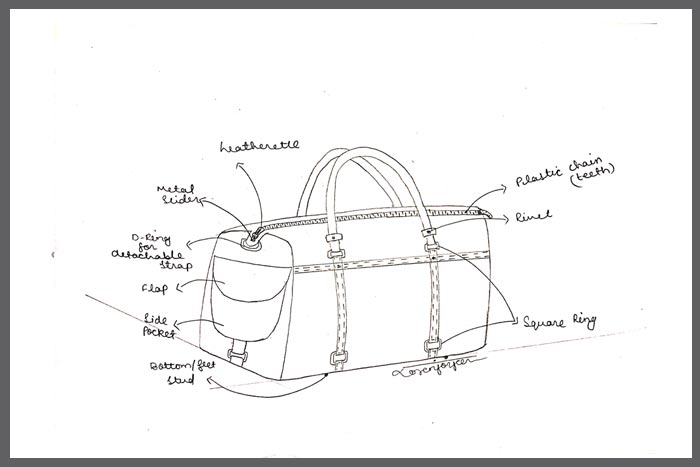 Leatherette
Metal
Slider
D-Ring
for
detachable
strap
Flap
Side
Pocket
Bottom/feet
stud
Plastic chain
(teeth)
Rivet
Square Ring